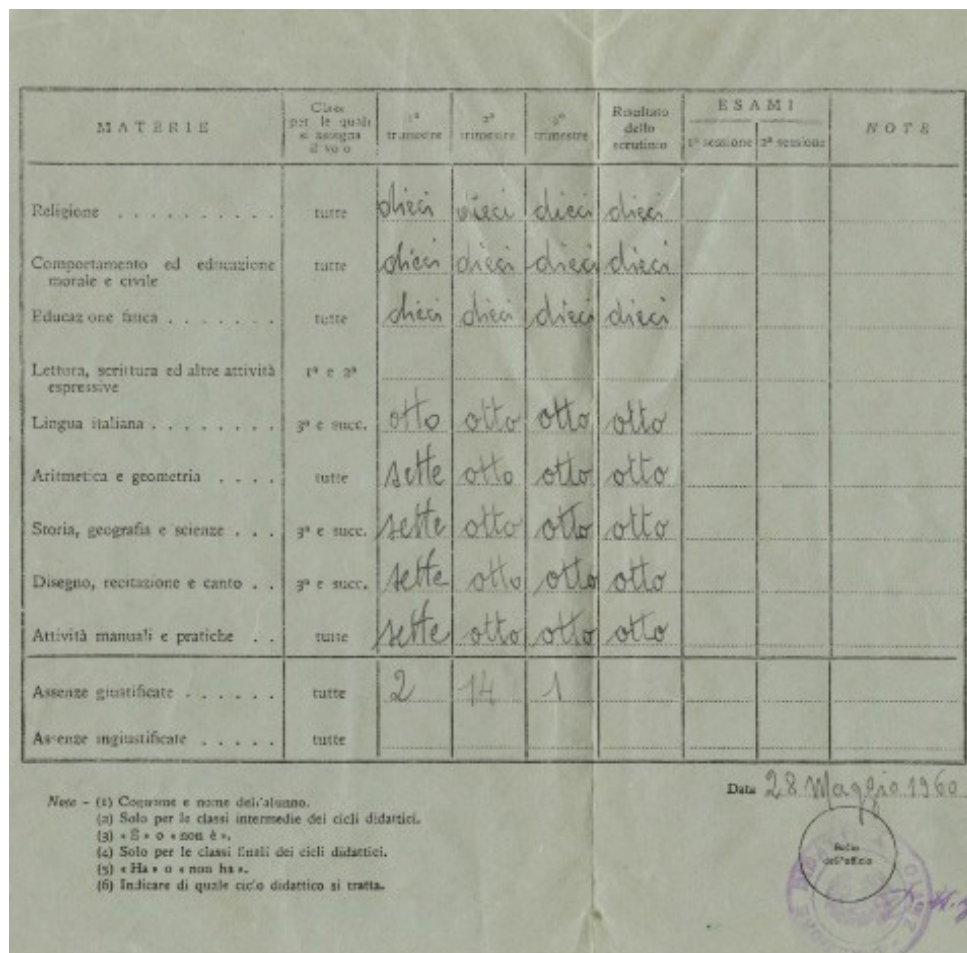 MATERIE Classi per le quali si assegna il voto 1º trimestre 2º trimestre 3º trimestre Risultato dello scrutinio ESAMI 1ª sessione 2ª sessione NOTE
Religione . . . . . . . . . . tutte dieci dieci dieci dieci
Comportamento ed educazione morale e civile tutte dieci dieci dieci dieci
Educazione fisica . . . . . . . tutte dieci dieci dieci dieci
Lettura, scrittura ed altre attività espressive 1ª e 2ª
Lingua italiana . . . . . . . . 3ª e succ. otto otto otto otto
Aritmetica e geometria . . . . tutte sette otto otto otto
Storia, geografia e scienze . . . 3ª e succ. sette otto otto otto
Disegno, recitazione e canto . . 3ª e succ. sette otto otto otto
Attività manuali e pratiche . . tutte sette otto otto otto
Assenze giustificate . . . . . . tutte 2 14 1
Assenze ingiustificate . . . . . tutte
Data 28 Maggio 1960
Note - (1) Cognome e nome dell'alunno.
(2) Solo per le classi intermedie dei cicli didattici.
(3) « È » o « non è ».
(4) Solo per le classi finali dei cicli didattici.
(5) « Ha » o « non ha ».
(6) Indicare di quale ciclo didattico si tratta.
Bollo
dell'ufficio